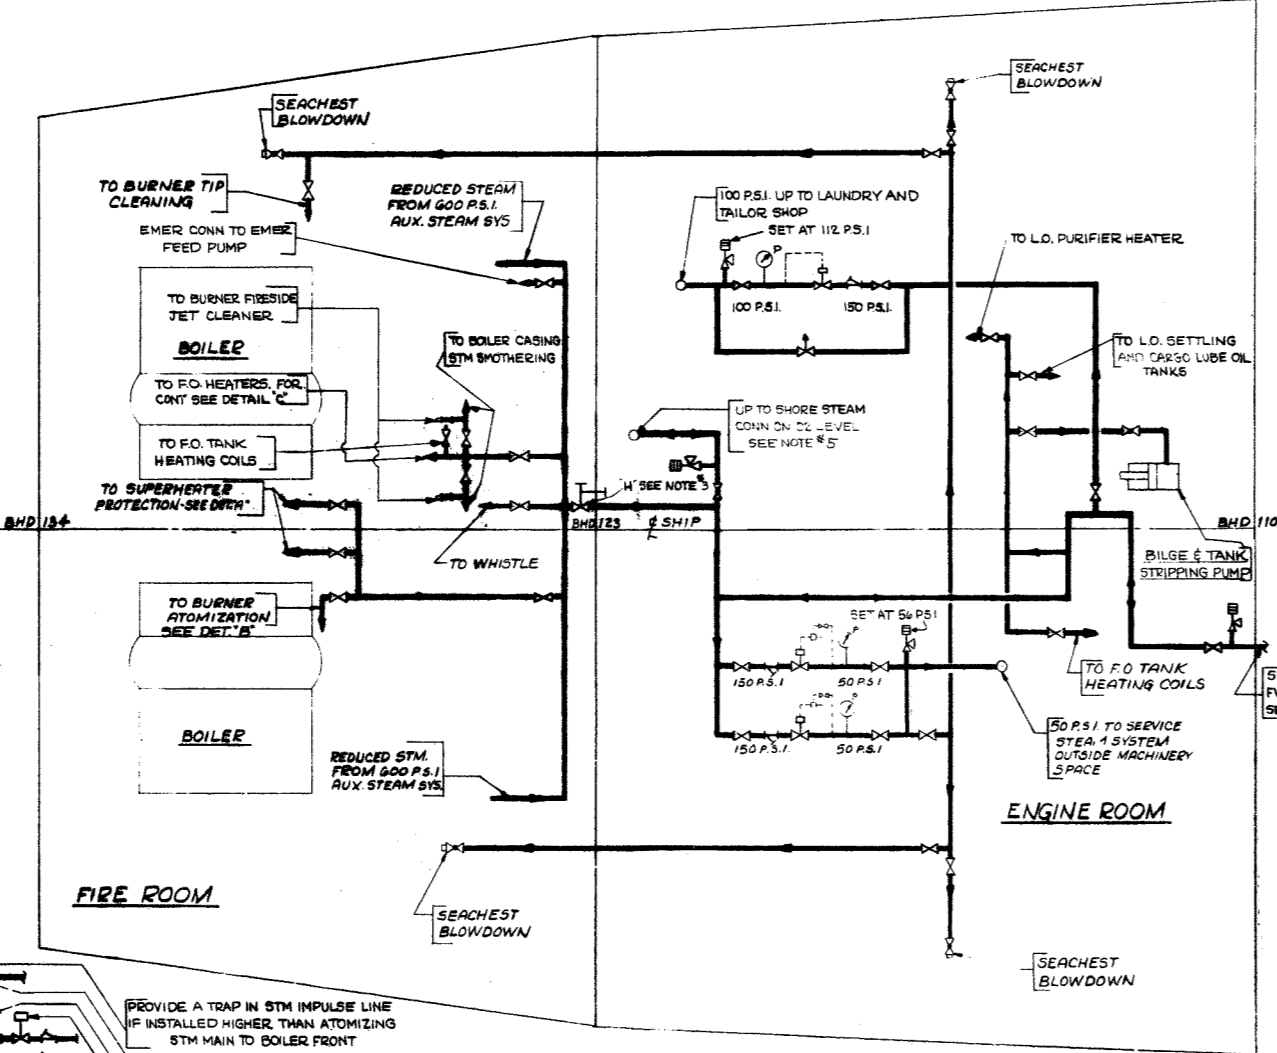 SEACHEST
BLOWDOWN
SEACHEST
BLOWDOWN
TO BURNER TIP
CLEANING
REDUCED STEAM
FROM 600 P.S.I.
AUX. STEAM SYS
100 P.S.I. UP TO LAUNDRY AND
TAILOR SHOP
SET AT 112 P.S.I
P
EMER CONN TO EMER
FEED PUMP
TO L.O. PURIFIER HEATER
TO BURNER FIRESIDE
JET CLEANER
100 P.S.I.
150 P.S.I.
BOILER
TO BOILER CASING
STM SMOTHERING
TO L.O. SETTLING
AND CARGO LUBE OIL
TANKS
TO F.O. HEATERS. FOR
CONT SEE DETAIL "C"
UP TO SHORE STEAM
CONN ON 02 LEVEL
SEE NOTE #5
TO F.O. TANK
HEATING COILS
TO SUPERHEATER
PROTECTION-SEE DET."A"
"H" SEE NOTE #3
BHD 134
BHD 123
℄ SHIP
BHD 110
TO WHISTLE
BILGE & TANK
STRIPPING PUMP
TO BURNER
ATOMIZATION
SEE DET. "B"
SET AT 56 PSI
P
150 P.S.I
50 P.S.I
TO F.O TANK
HEATING COILS
P
150 P.S.I.
50 P.S.I
BOILER
50 P.S.I. TO SERVICE
STEAM SYSTEM
OUTSIDE MACHINERY
SPACE
REDUCED STM.
FROM 600 P.S.I
AUX. STEAM SYS.
ENGINE ROOM
FIRE ROOM
SEACHEST
BLOWDOWN
SEACHEST
BLOWDOWN
PROVIDE A TRAP IN STM IMPULSE LINE
IF INSTALLED HIGHER THAN ATOMIZING
STM MAIN TO BOILER FRONT